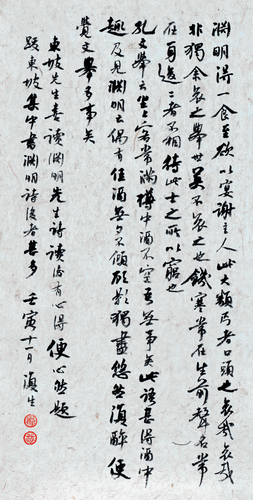 渊明得一食至欲以冥谢主人此大類丐者口頭也哀哉哀哉
非獨余哀之舉世莫不哀之也饑寒常在生前聲名常
在身後二者不相待此士之所以窮也
孔文舉云坐上客常滿樽中酒不空吾無事矣此語甚得酒中
趣及見渊明云偶有佳酒無夕不傾顧影獨盡悠然復醉便
覺文舉多事矣
東坡先生喜讀渊明先生詩讀後有心得便心然題
跋東坡集中書渊明詩後者甚多 壬寅十一月